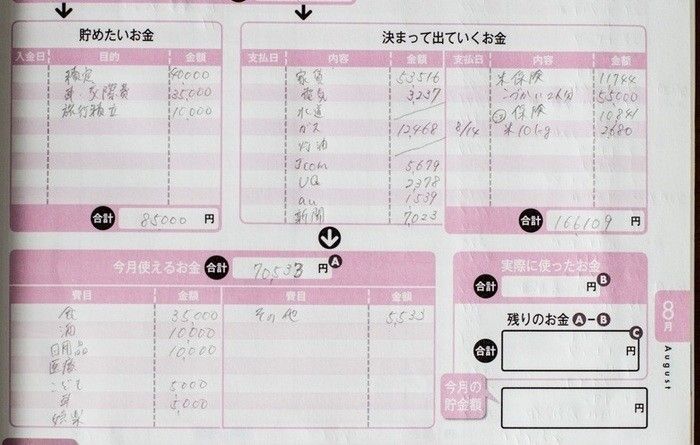 貯めたいお金
入金日 目的 金額
積定 40000
車・交際費 35000
旅行積立 10,000
合計 85000 円
決まって出ていくお金
支払日 内容 金額 支払日 内容 金額
家賃 53516
電気 3237
水道
ガス 12,468
灯油
Jcom 5,679
UQ 2,378
au 1,539
新聞 7,023
保険 11744
こづかい2人分 55000
保険 10,841
8/14 米10kg 2,680
合計 166109 円
今月使えるお金 合計 70,533 円 A
費目 金額 費目 金額
食 35,000 その他 5,533
酒 10,000
日用品 10,000
医療
こども 5000
車 5,000
娯楽
実際に使ったお金
合計 円 B
残りのお金 A-B
合計 円 C
今月の
貯金額
円
8
月
August